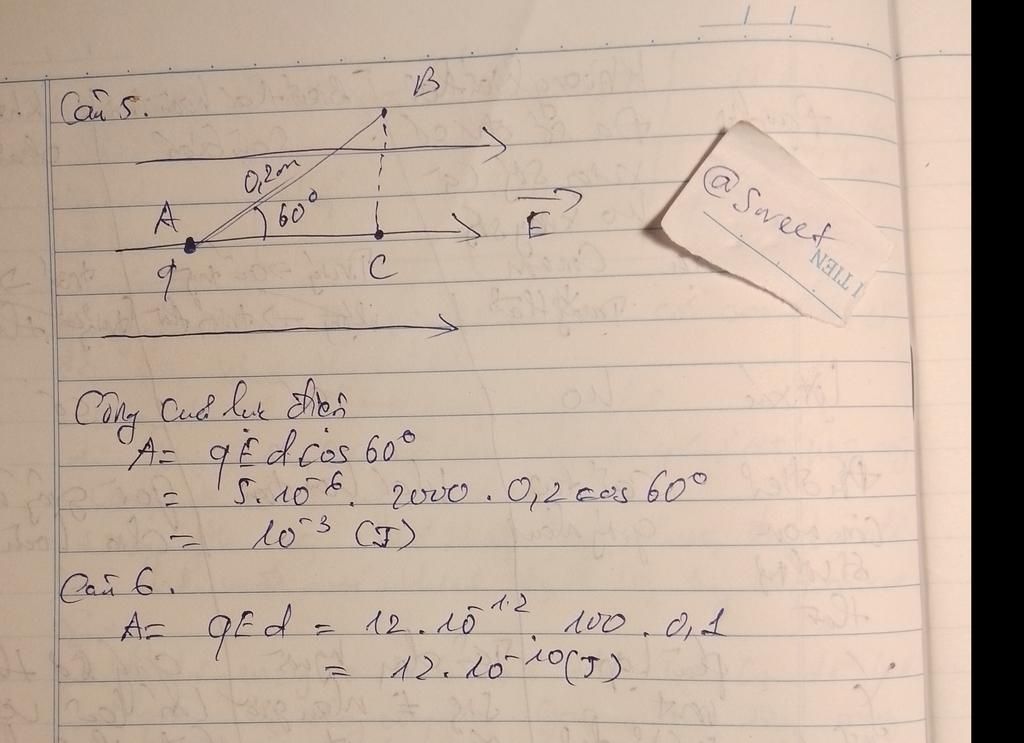 Câu 5.
B
0,2m
A
60°
E
q
C
@Sweet
I TIEN
Công của lực điện
A = qEd cos 60°
= 5.10⁻⁶. 2000 . 0,2 cos 60°
= 10⁻³ (J)
Câu 6.
A = qEd = 12.10⁻¹² . 100 . 0,1
= 12.10⁻¹⁰ (J)